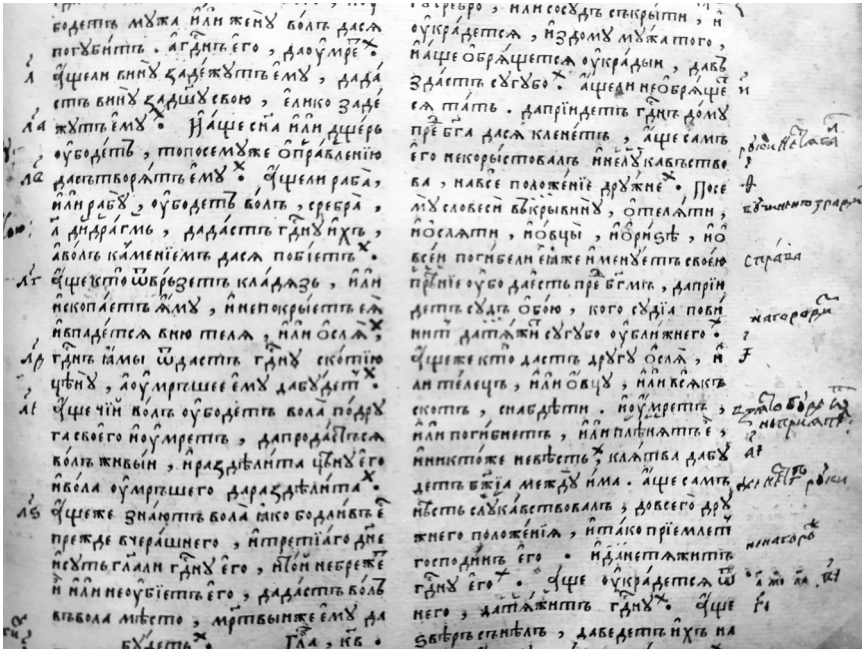 бодетъ мужа и҆лѝ женꙋ̀ во́лъ дасѧ
погꙋби́тъ . а҆ гдⷭ҇нъ є҆го̀ , да оу҆́мре .
а҆́щели винꙋ̀ ѕаде́жꙋтъ є҆мꙋ̀ , дада́
стъ винꙋ̀ ѕа дш҃ꙋ свою̀ , є҆ли́ко заде́
жꙋтъ є҆мꙋ̀ . И҆а҆́ще сн҃а и҆лѝ дще́рь
оу҆боде́тъ , то посемꙋже ѡ҆правле́нїю
да сътворѧ́тъ є҆мꙋ̀ . а҆́щели раба̀ ,
и҆лѝ рабꙋ̀ , оу҆боде́тъ во́лъ , сребра̀ ,
л҃ дидра́гмъ , дада́стъ гдⷭ҇нꙋ и҆́хъ ,
а во́лъ ка́менїемъ дасѧ побїе́тъ .
а҆́ще кто̀ ѿвръ́зетъ кла́дѧзь , и҆лѝ
и҆скопа́етъ ꙗ҆́мꙋ , и҆ непокры́етъ еѧ̀
и҆ впаде́тсѧ вню̀ телѧ̀ , и҆лѝ ѻ҆слѧ̀ ,
гдⷭ҇нъ ꙗ҆́мы ѿда́стъ гдⷭ҇нꙋ ско́тїю
цѣ́нꙋ , а҆ оу҆мръ́шее є҆мꙋ̀ да бꙋ́детъ .
а҆́ще чїй во́лъ оу҆боде́тъ вола̀ по́дрꙋ
га своего̀ и҆ оу҆́мретъ , да продадѧ́тъсѧ
во́лъ живы́и , и҆ раздѣли́та цѣ́нꙋ є҆го̀
и҆ вола̀ оу҆мръ́шего да раздѣли́та .
а҆́щеже зна́ютъ вола̀ ꙗ҆́ко бодли́въ є҆́
пре́жде вчера́шнего , и҆ тре́тїаго дн҃е
и҆ сꙋ́ть гл҃али гдⷭ҇нꙋ є҆го̀ , и҆ то́й небреже́
и҆лѝ неоубїе́тъ є҆го̀ , дада́стъ во́лъ
въ вола̀ мѣ́сто , мр҃твы́иже є҆мꙋ̀ да
бꙋ́детъ . Гл҃а , к҃в .
сребро̀ , и҆лѝ сосꙋ́дъ съкры́ти , и҆
оу҆кра́детсѧ , и҆здомꙋ̀ мꙋ́жа того̀ ,
и҆ а҆́ще ѡ҆брѧ́щетсѧ оу҆кра́дыи , давъ
зда́стъ сꙋгꙋ́бо . а҆́щели не ѡ҆брѧ́ще
сѧ та́ть . да прїи́детъ гдⷭ҇нъ до́мꙋ
пред̾ бг҃а дасѧ клене́тъ , а҆́ще са́мъ
є҆го̀ некоры́ствовалъ и҆ нелꙋка́въство
ва , навсѐ положе́нїе дрꙋ́жне . По се
мꙋ словесѝ въкры́винꙋ , ѻ҆ телѧ́ти ,
и҆ ѻ҆слѧ́ти , и҆ ѻ҆вцы́ , и҆ ѻ҆ ри́ѕѣ , и҆ ѻ҆
всѐи поги́бели є҆ꙗ́же и҆менꙋ́етъ свое́ю
прѣ́нїе оу҆́бо дае́сть пред̾ бг҃мъ , да прїи́
детъ сꙋ́дъ ѻ҆бою̀ , кого̀ сꙋдїа̀ пови́
нитъ датѧ́жи сꙋгꙋ́бо оу҆ бли́жнего .
а҆́щеже кто̀ да́стъ дрꙋ́гꙋ ѻ҆слѧ̀ , и҆
ли теле́цъ , и҆лѝ ѻ҆́вцꙋ , и҆лѝ всѧ́къ
ско́тъ , снабдѣ́ти . и҆ оу҆́мретъ ,
и҆лѝ поги́бнетъ , и҆лѝ плѣнѧ́тъ є҆̀ ,
и҆ никто́же невѣ́сть , клѧ́тва да бꙋ́
детъ бж҃їа междꙋ̀ и҆́ма . а҆́ще са́мъ
нѣ́сть слꙋка́вствовалъ , до всего̀ дрꙋ́
жнего положе́нїѧ , и҆ та́ко прїе́млетъ
господи́нъ є҆го̀ . и҆ да нетѧ́житъ
гдⷭ҇нꙋ є҆го̀ . а҆́ще оу҆кра́детсѧ ѿ
него̀ , датѧ́житъ гдⷭ҇нꙋ . а҆́ще
ѕвѣ́рь снѣ́лъ , да веде́тъ и҆́хъ на
л҃
л҃а
л҃в
л҃г
л҃д
л҃е
л҃ѕ
спра́ва